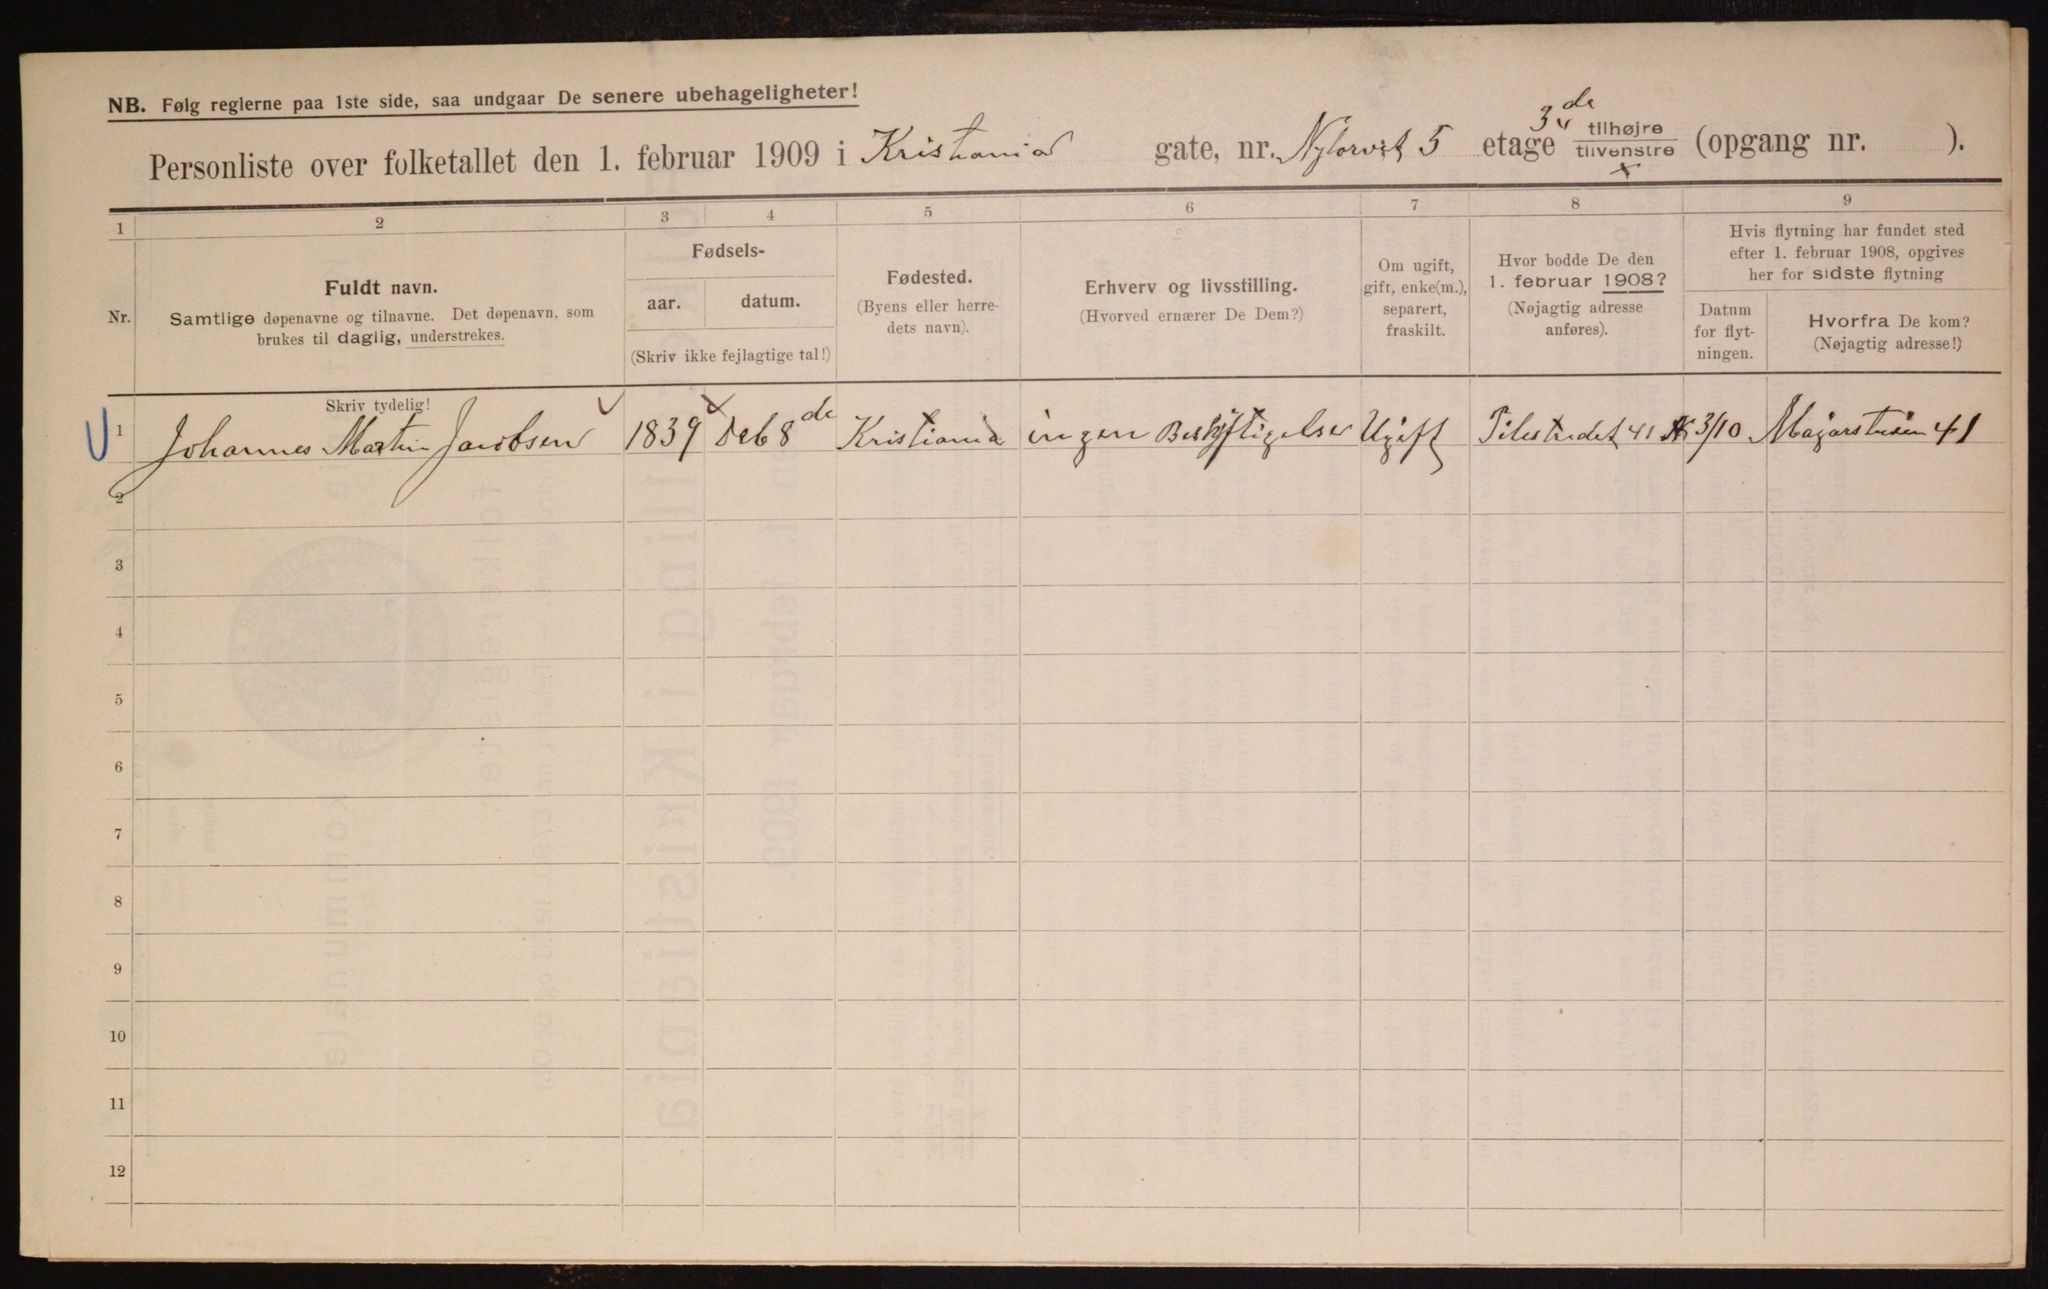 NB. Følg reglerne paa 1ste side, saa undgaar De senere ubehageligheter!
Personliste over folketallet den 1. februar 1909 i Kristiania gate, nr. Nytorvet 5 etage 3de tilhøjre tilvenstre (opgang nr. ).
1 2 3 4 5 6 7 8 9
Nr.
Fuldt navn.
Samtlige døpenavne og tilnavne. Det døpenavn, som
brukes til daglig, understrekes.
Skriv tydelig!
Fødsels-
aar. datum.
(Skriv ikke fejlagtige tal!)
Fødested.
(Byens eller herre-
dets navn).
Erhverv og livsstilling.
(Hvorved ernærer De Dem?)
Om ugift,
gift, enke(m.),
separert,
fraskilt.
Hvor bodde De den
1. februar 1908?
(Nøjagtig adresse
anføres).
Hvis flytning har fundet sted
efter 1. februar 1908, opgives
her for sidste flytning
Datum
for flyt-
ningen.
Hvorfra De kom?
(Nøjagtig adresse!)
1 Johannes Martin Jacobsen 1839 8de Kristiania ingen Ugift Pilestredet 41 3/10 41
2
3
4
5
6
7
8
9
10
11
12